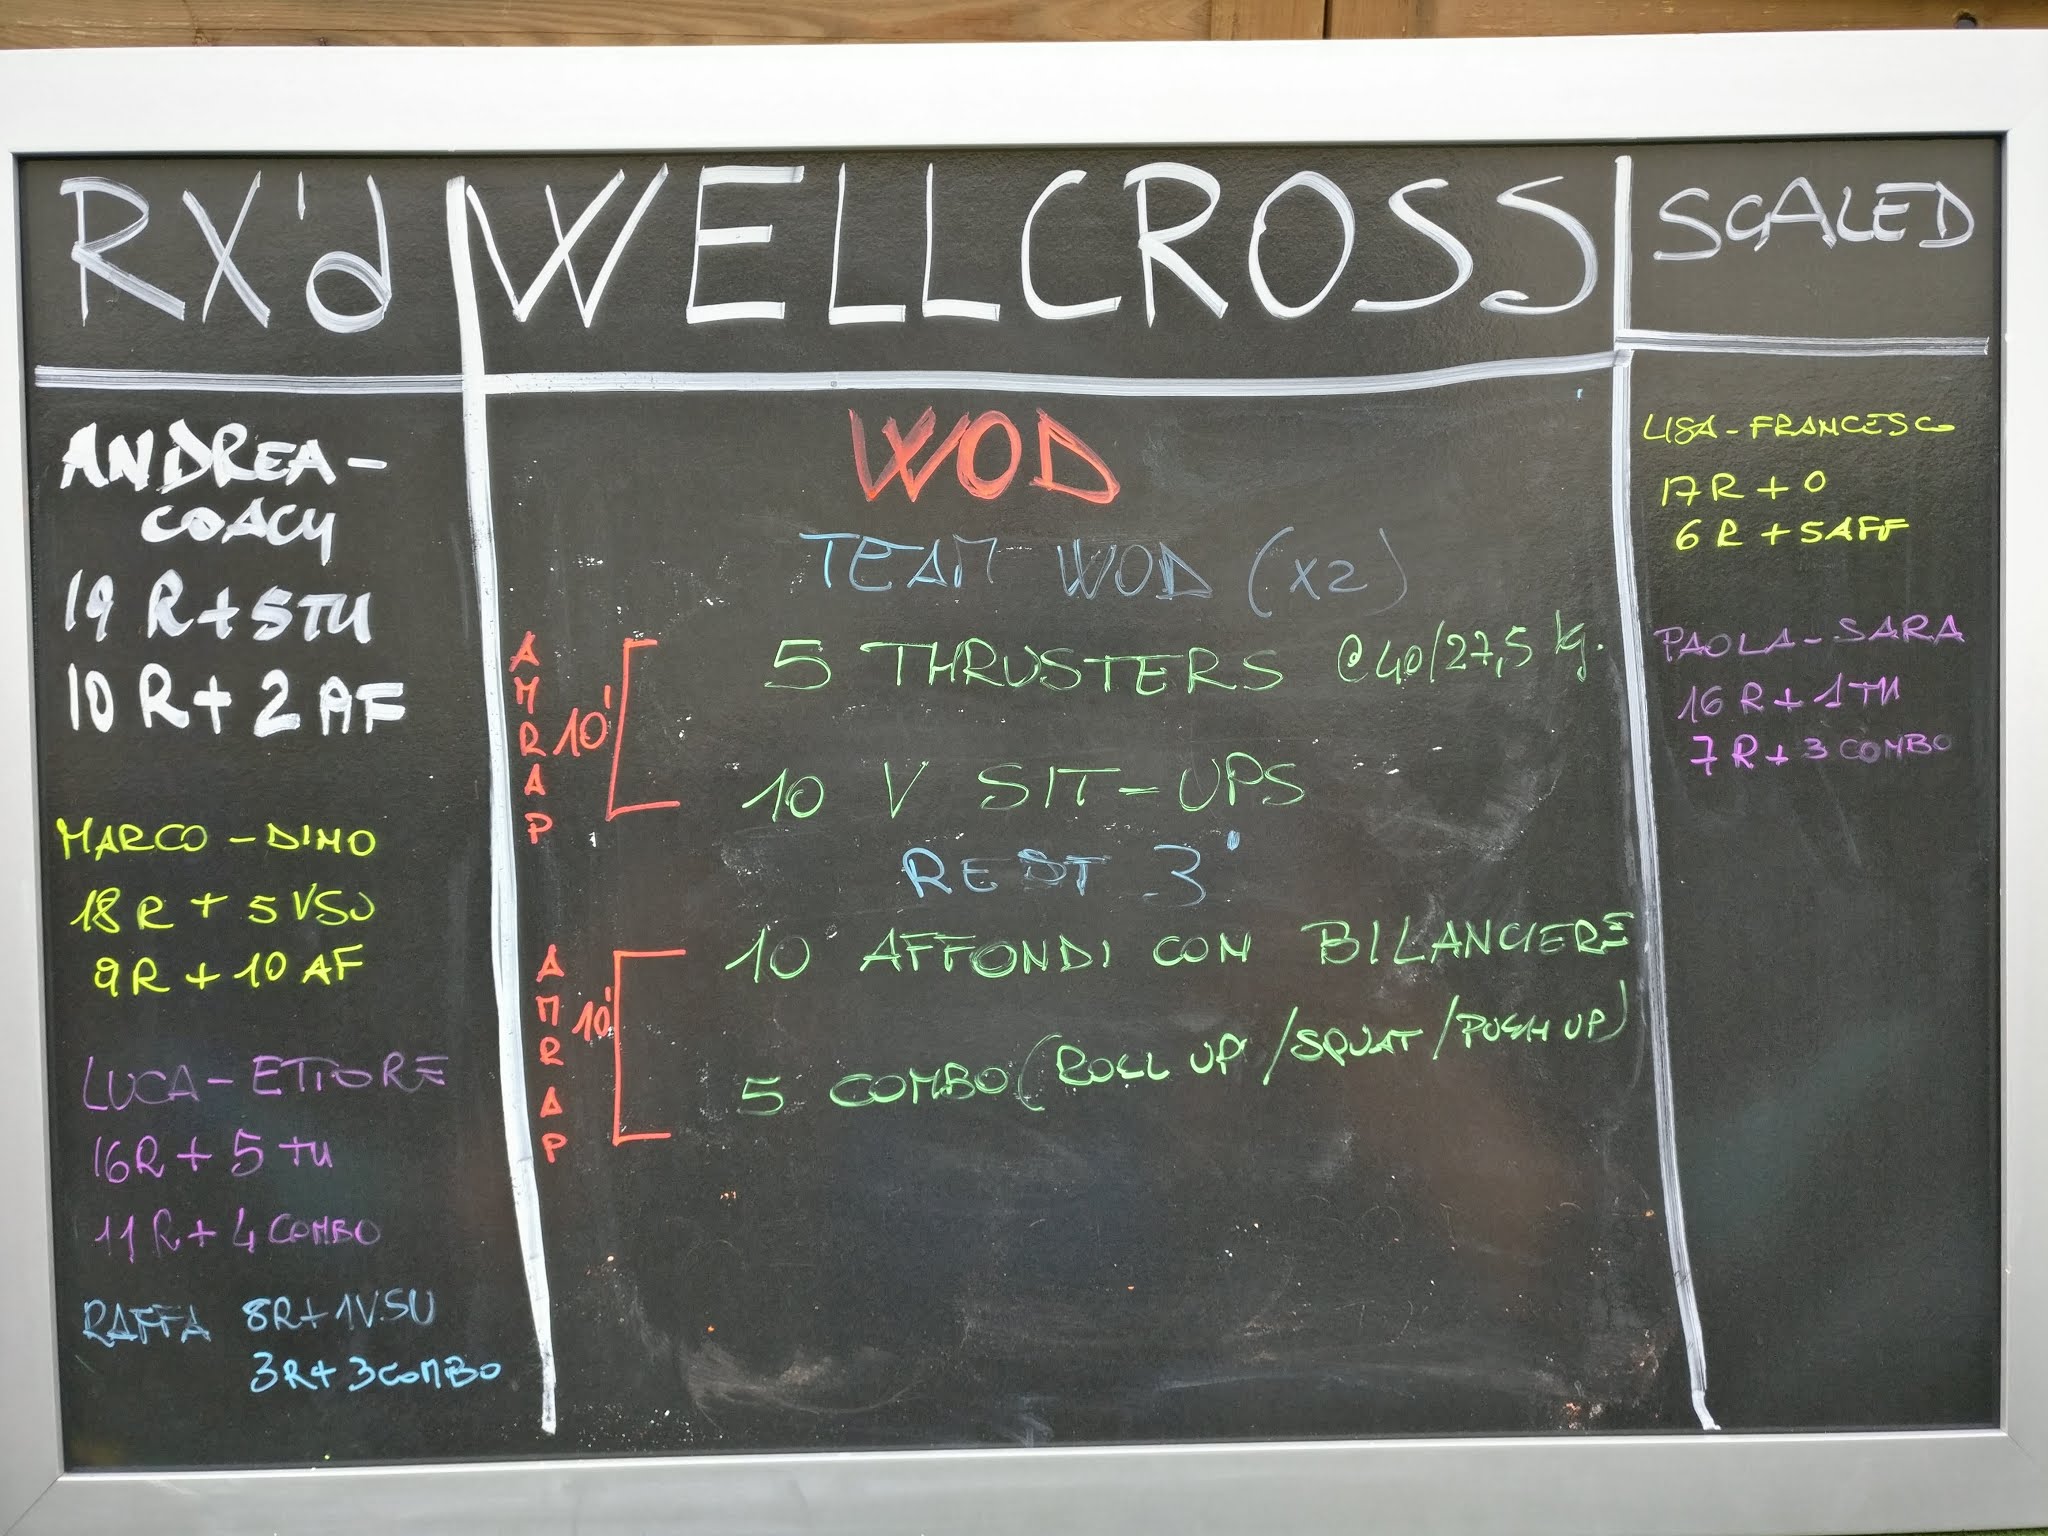 RX'd
ANDREA-
COACH
19 R + 5 TH
10 R + 2 AF
MARCO - DIMO
18 R + 5 VSU
9 R + 10 AF
LUCA - ETTORE
16 R + 5 TH
11 R + 4 COMBO
RAFFA 8R + 1 V.SU
3R + 3 COMBO
WELLCROSS
WOD
TEAM WOD (X2)
AMRAP 10'
5 THRUSTERS @ 40/27,5 kg.
10 V SIT-UPS
REST 3'
AMRAP 10'
10 AFFONDI CON BILANCIERE
5 COMBO (ROLL UP / SQUAT / PUSH UP)
SCALED
LISA - FRANCESCO
17 R + 0
6 R + 5 AFF
PAOLA - SARA
16 R + 1 TH
7 R + 3 COMBO